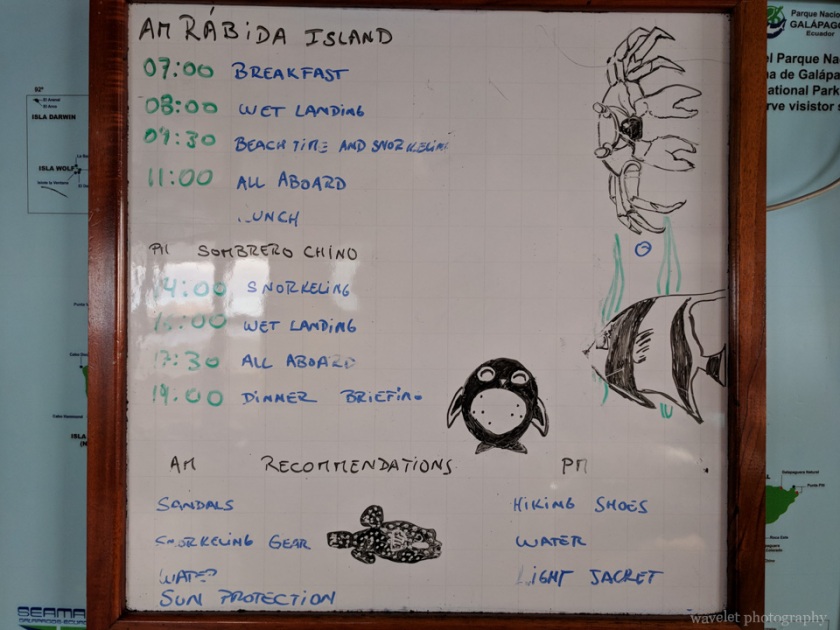 AM RÁBIDA ISLAND
07:00 BREAKFAST
08:00 WET LANDING
09:30 BEACH TIME AND SNORKELING
11:00 ALL ABOARD
LUNCH
PM SOMBRERO CHINO
14:00 SNORKELING
WET LANDING
17:30 ALL ABOARD
19:00 DINNER BRIEFING
AM RECOMMENDATIONS PM
SANDALS HIKING SHOES
SNORKELING GEAR WATER
WATER LIGHT JACKET
SUN PROTECTION
92°
ISLA DARWIN
ISLA WOLF
Parque Nacio
GALÁPAGO
Ecuador
el Parque Na
na de Galápa
ational Park
rve visistor s
SEAMA
GALAPAGOS-ECUAD
wavelet photography